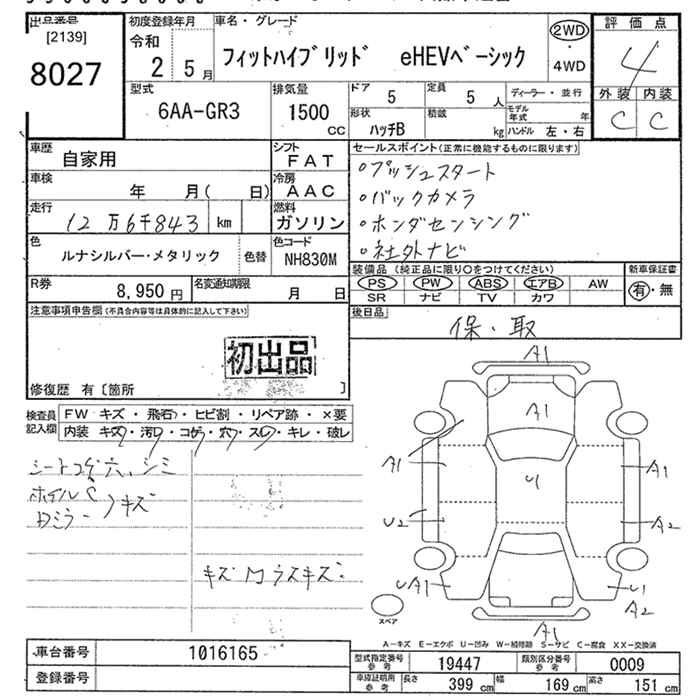 出品番号
[2139]
8027
初度登録年月
令和
2 5月
車名・グレード
フィットハイブリッド eHEVベーシック
2WD
4WD
評価点
4
外装 内装
C C
型式
6AA-GR3
排気量
1500
CC
ドア 5
定員 5 人
ディーラー・並行
形状 ハッチB
積載 kg
モデル年式 年
ハンドル 左・右
車歴
自家用
シフト
FAT
車検
年 月( 日)
冷房
AAC
走行
12万6千843 km
燃料
ガソリン
色
ルナシルバー・メタリック
色替
色コード
NH830M
R券
8,950円
名変通知期限
月 日
セールスポイント(正常に機能するものに限ります)
○プッシュスタート
○バックカメラ
○ホンダセンシング
○社外ナビ
装備品(純正品に限り○をつけてください)
新車保証書
PS PW ABS エアB AW
SR ナビ TV カワ
有・無
後日品
保・取
注意事項申告欄(不具合内容等は具体的に記入して下さい)
初出品
修復歴 有〔箇所 〕
検査員記入欄
FW キズ・飛石・ヒビ割・リペア跡・×要
内装 キズ・汚レ・コゲ・穴・スレ・キレ・破レ
シートコゲ穴、シミ
ホイルC
Dミラー
キズ
キズM ウスキズ
A1
A1
A1
U1
A1
U2
A2
UA1
U1
A2
A1
スペア
A-キズ E-エクボ U-凹み W-補修跡 S-サビ C-腐食 XX-交換済
車台番号
1016165
登録番号
型式指定番号
参考
19447
類別区分番号
参考
0009
車庫証明用
参考
長さ 399 cm
幅 169 cm
高さ 151 cm